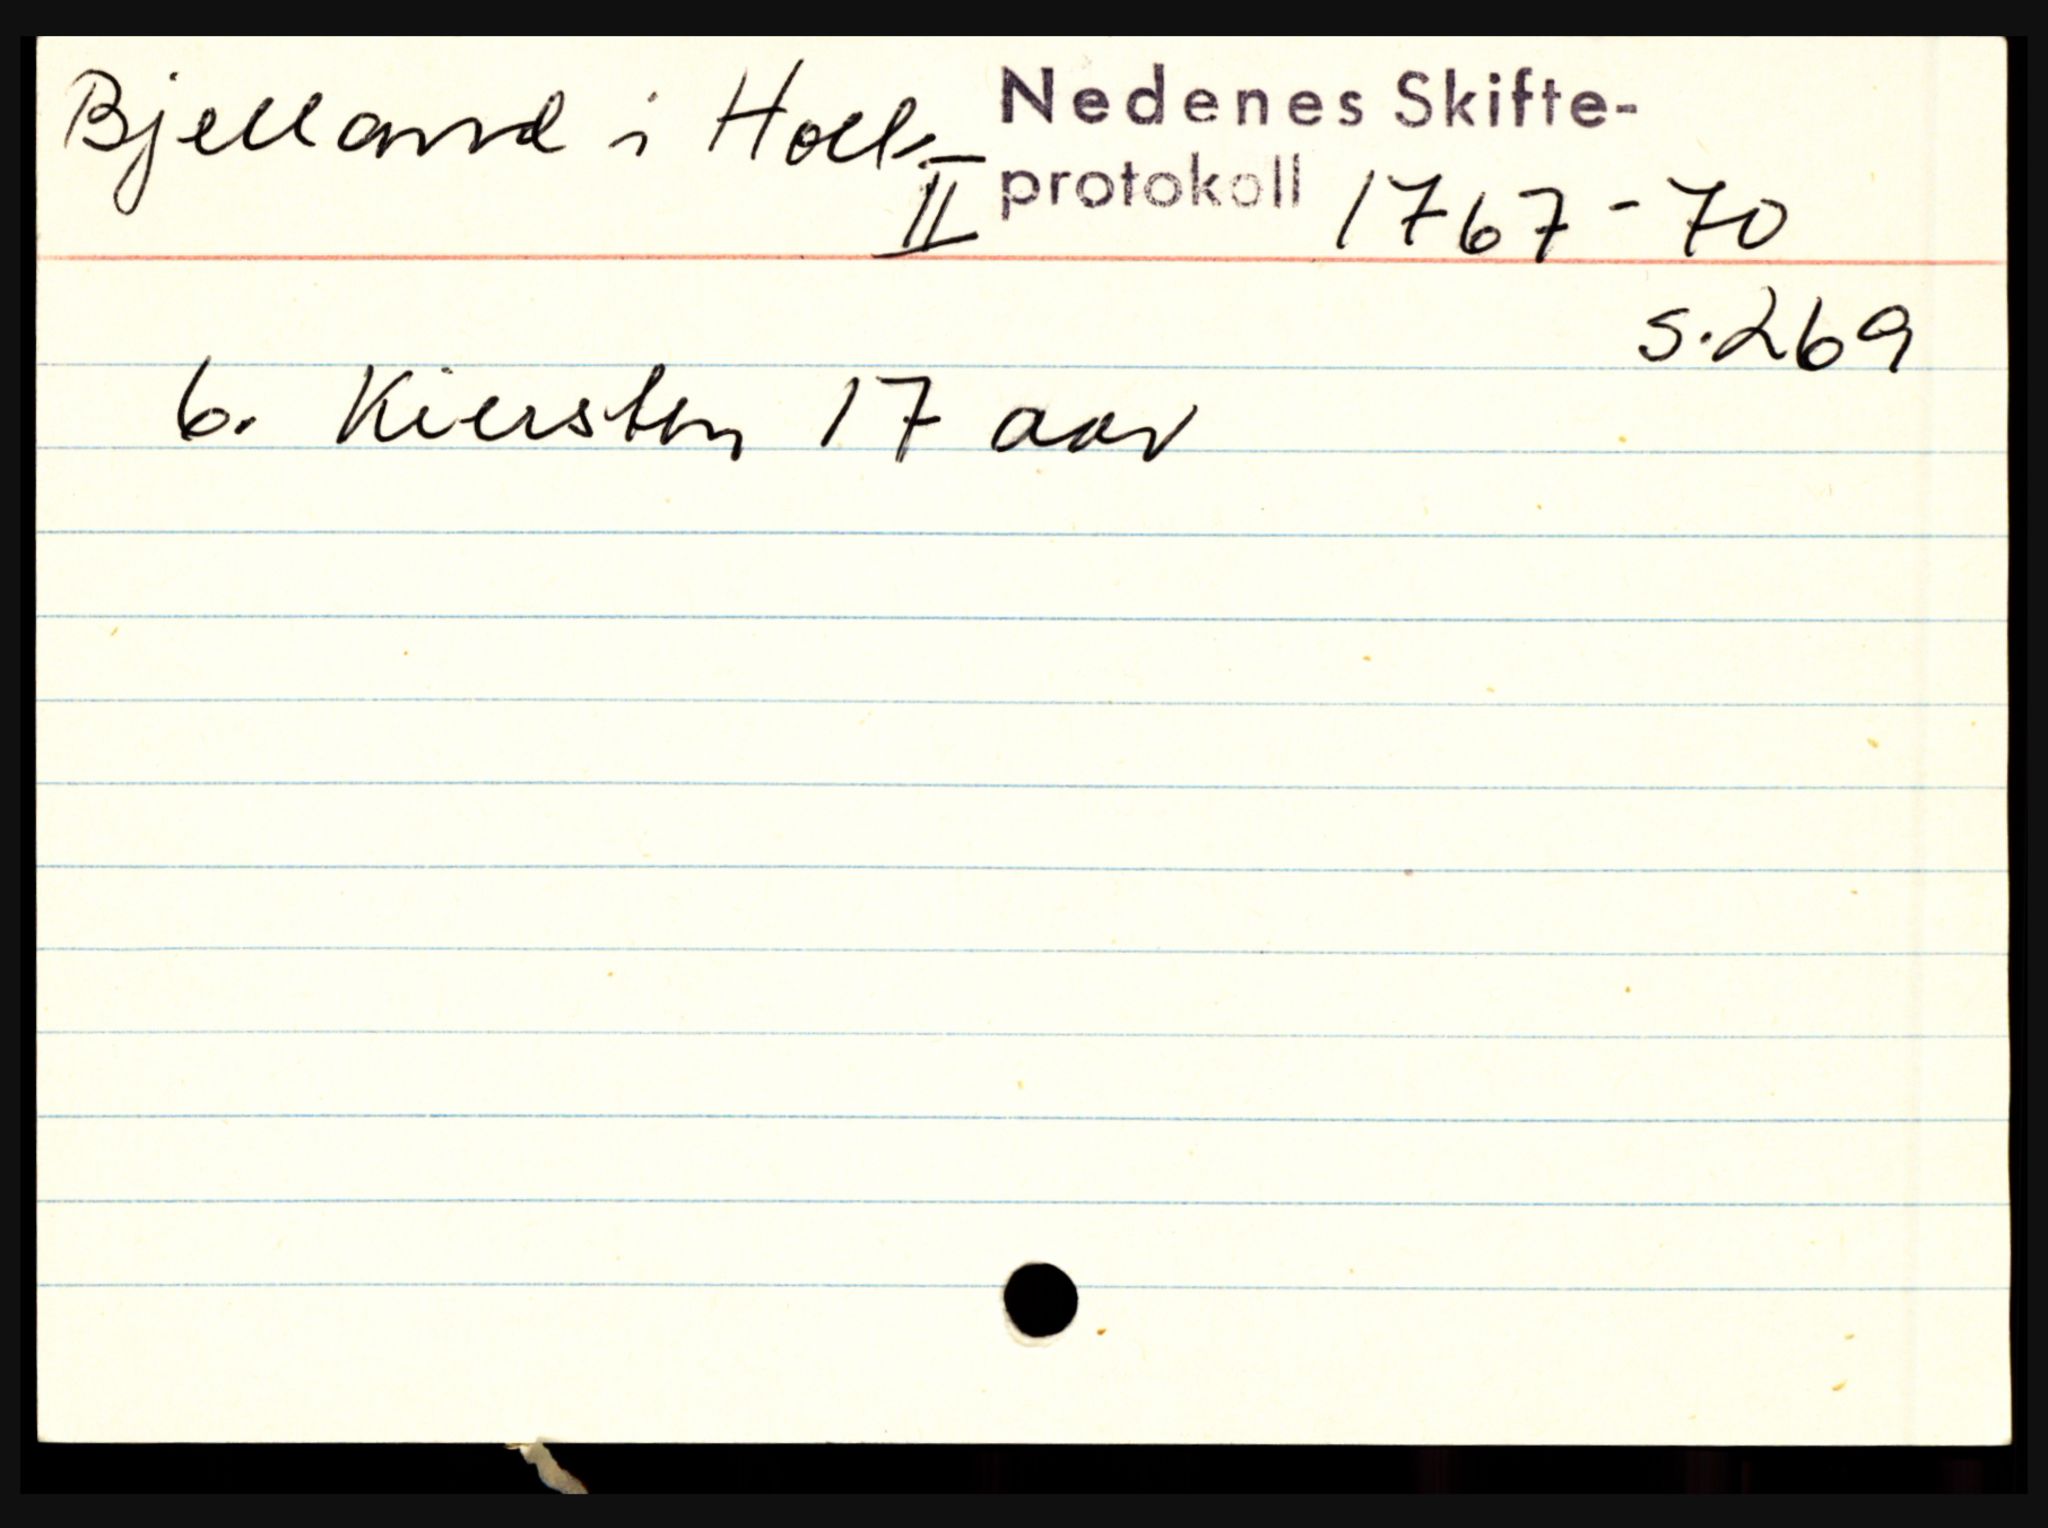 Bjelland i Holt Nedenes Skifte-
II protokoll 1767-70
s.269
6. Kiersten 17 aar